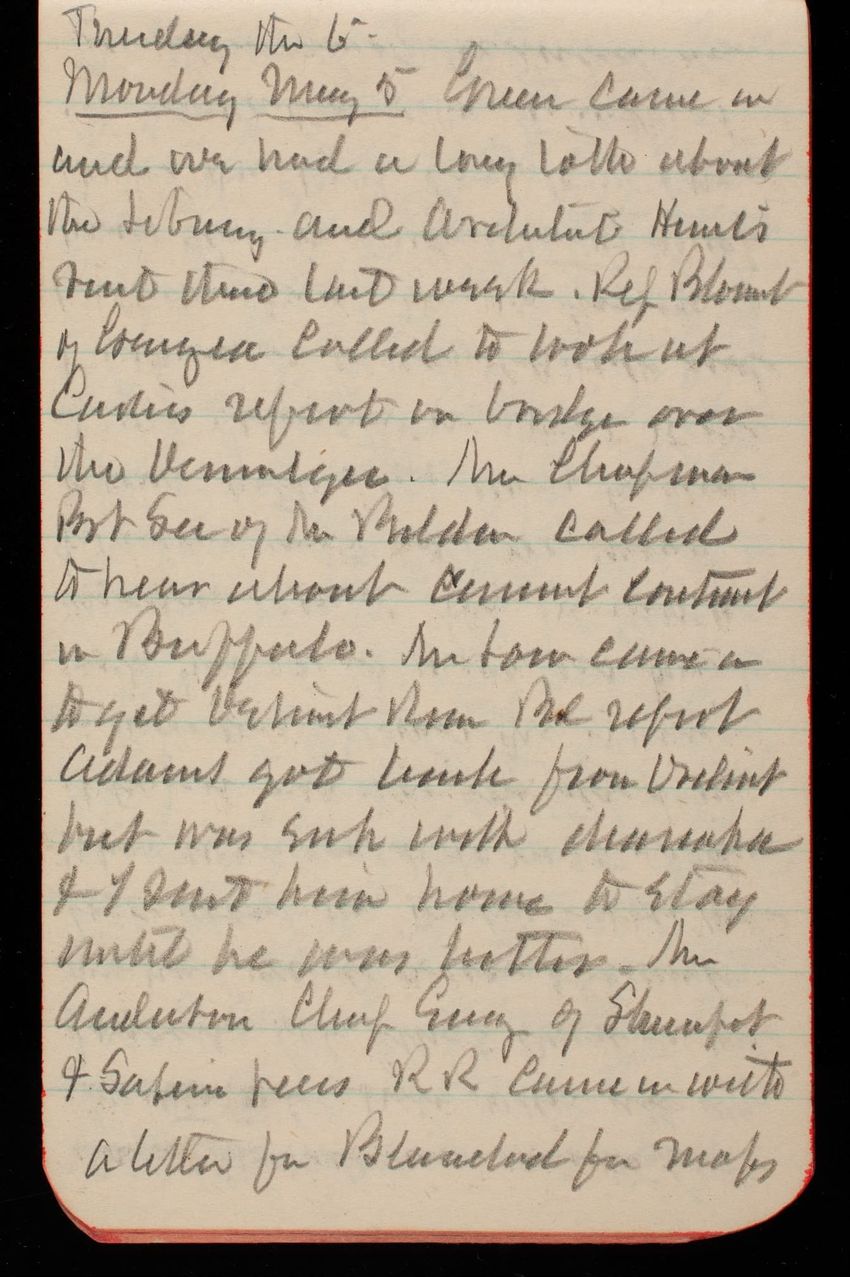 Tuesday the 6-
Monday May 5 Green came in
and we had a long talk about
the Library and Architect Hunt's
visit there last week. Rep Blount
of Georgia called to look at
report on bridge over
the Ocmulgee. Mr Chapman
Pvt Sec of Mr Belden called
to hear about cement contract
in Buffalo. Mr came in
to get report
Adams got back from Detroit
but was sick with diarrhea
& I sent him home to stay
until he was better. Mr
Anderson Chief Eng of Shreveport
& Sabine pass R R came in with
a letter fr Blanchard for maps